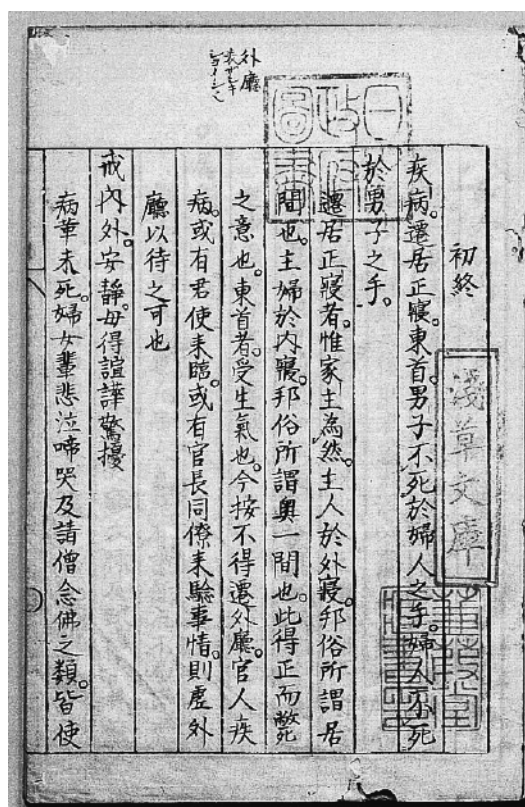 淺草文庫
日本政府圖書
外廳
初終
疾病。遷居正寢。東首。男子不死於婦人之手。婦人不死
於男子之手。
遷居正寢者。惟家主為然。主人於外寢。邦俗所謂居
間也。主婦於內寢。邦俗所謂奥一間也。此得正而斃
之意也。東首者。受生氣也。今按不得遷外廳。官人疾
病。或有君使来臨。或有官長同僚来驗事情。則虚外
廳以待之可也
戒內外。安靜。毋得諠譁驚擾
病革未死。婦女輩悲泣啼哭及請僧念佛之類。皆使